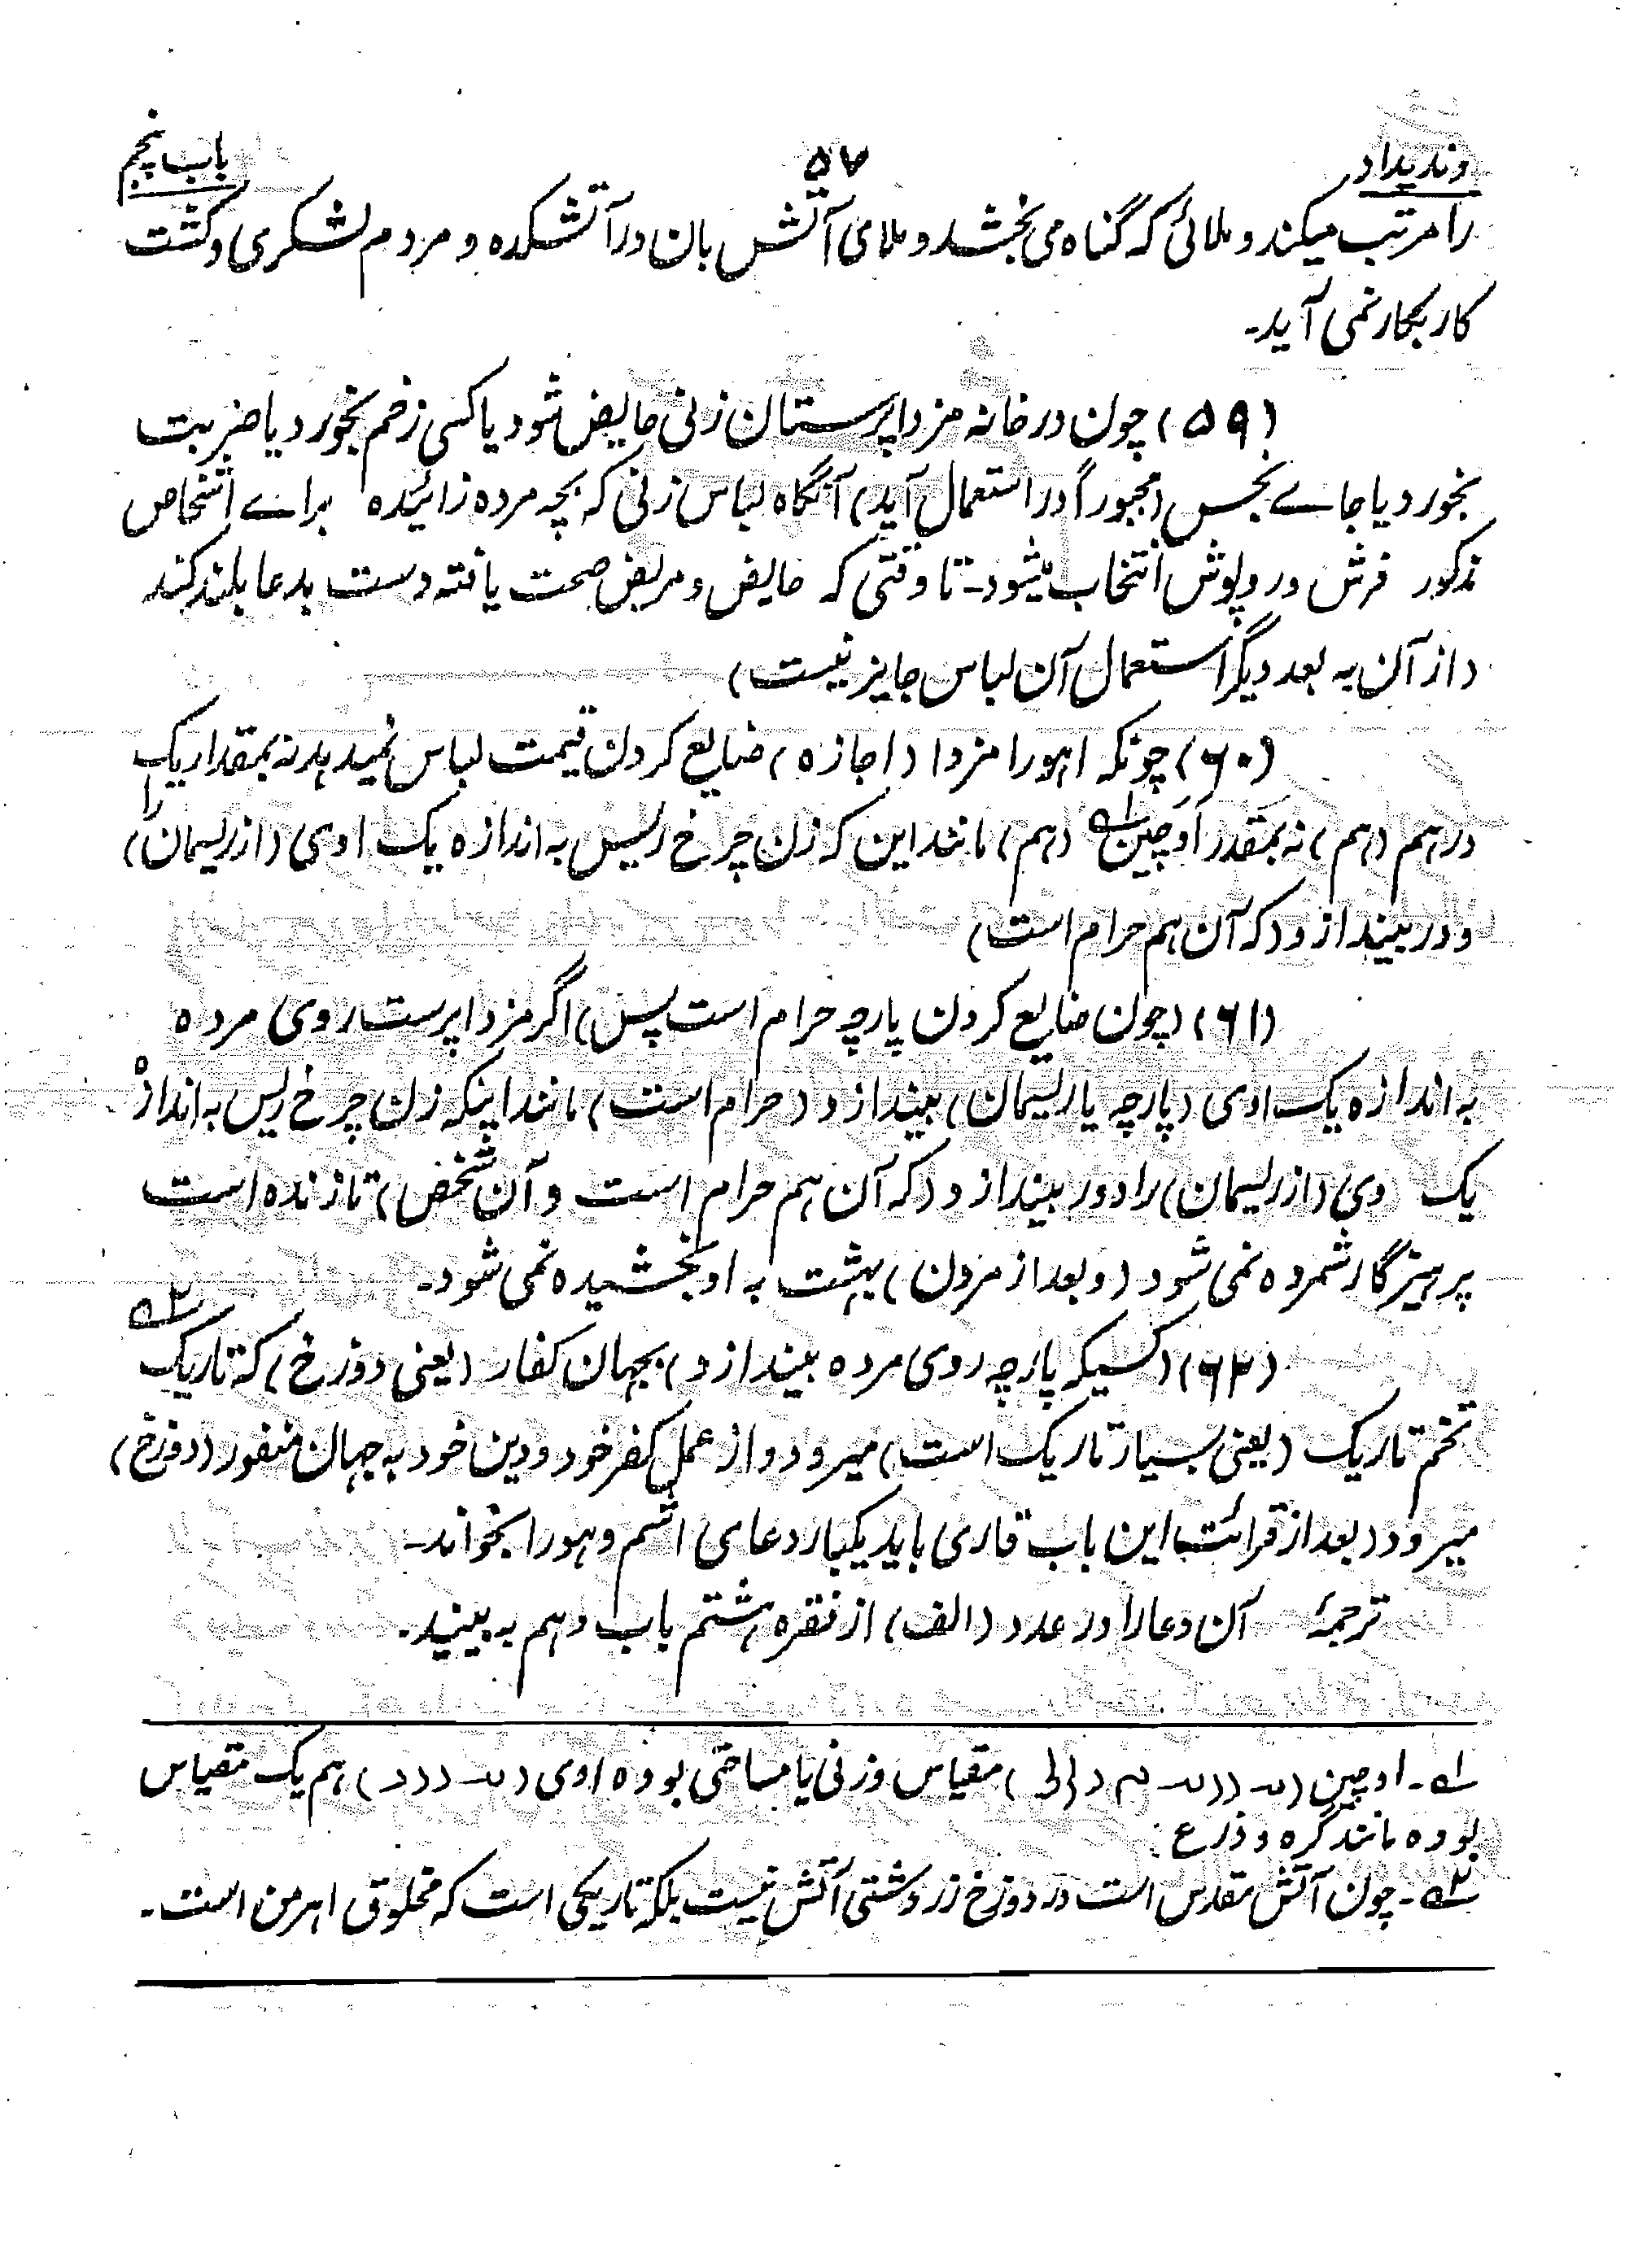 وندیداد
۵۷
باب پنجم
را مرتب میکند و ملائی که گناه می بخشد و ملای آتش بان در آتشکده و مردم لشکری و کشت
کار بکار نمی آید۔
(۵۹) چون در خانه مزدا پرستان زنی حایض شود یا کسی زخم بخورد یا ضربت
بخورد یا جاے نجس (مجبوراً در استعمال آید) آنگاه لباس زنی که بچه مرده زائیده براے اشخاص
مذکور فرش و روپوش انتخاب میشود۔ تا وقتی که حایض و مریض صحت یافته دست بدعا بلند کند
(از آن به بعد دیگر استعمال آن لباس جایز نیست)
(۶۰) چونکه اهورا مزدا (اجازه) ضایع کردن قیمت لباس نمیدهد نه بمقدار یک
درهم (هم) نه بمقدر اَوَچین ۱؎ (هم) مانند این که زن چرخ ریس به اندازه یک اوی (از ریسمان) را
دور بیندازد (که آن هم حرام است)
(۶۱) (چون ضایع کردن پارچه حرام است پس) اگر مزدا پرست روی مرده
به اندازه یک اوی (پارچه یا ریسمان) بیندازد (حرام است) مانند اینکه زن چرخ ریس به اندازۀ
یک وی (از ریسمان) را دور بیندازد (که آن هم حرام است و آن شخص) تا زنده است
پرهیزگار شمرده نمی شود (و بعد از مردن) بهشت به او بخشیده نمی شود۔
(۶۲) (کسیکه پارچه روی مرده بیندازد) بجهان کفار (یعنی دوزخ) که تاریک ۲؎
تخم تاریک (یعنی بسیار تاریک است) میرود و از عمل کفر خود و دین خود به جهان منفور (دوزخ)
میرود (بعد از قرائت این باب قاری باید یکبار دعای اشم وهو را بخواند۔
ترجمۀ آن دعا را در عدد (الف) از فقره هشتم باب دهم به بینید۔
۱؎۔ اوچین مقیاس وزنی یا مساحتی بوده اوی هم یک مقیاس
بوده مانند گره و ذرع
۲؎۔ چون آتش مقدس است در دوزخ زردشتی آتش نیست بلکه تاریکی است که مخلوق اهرمن است۔